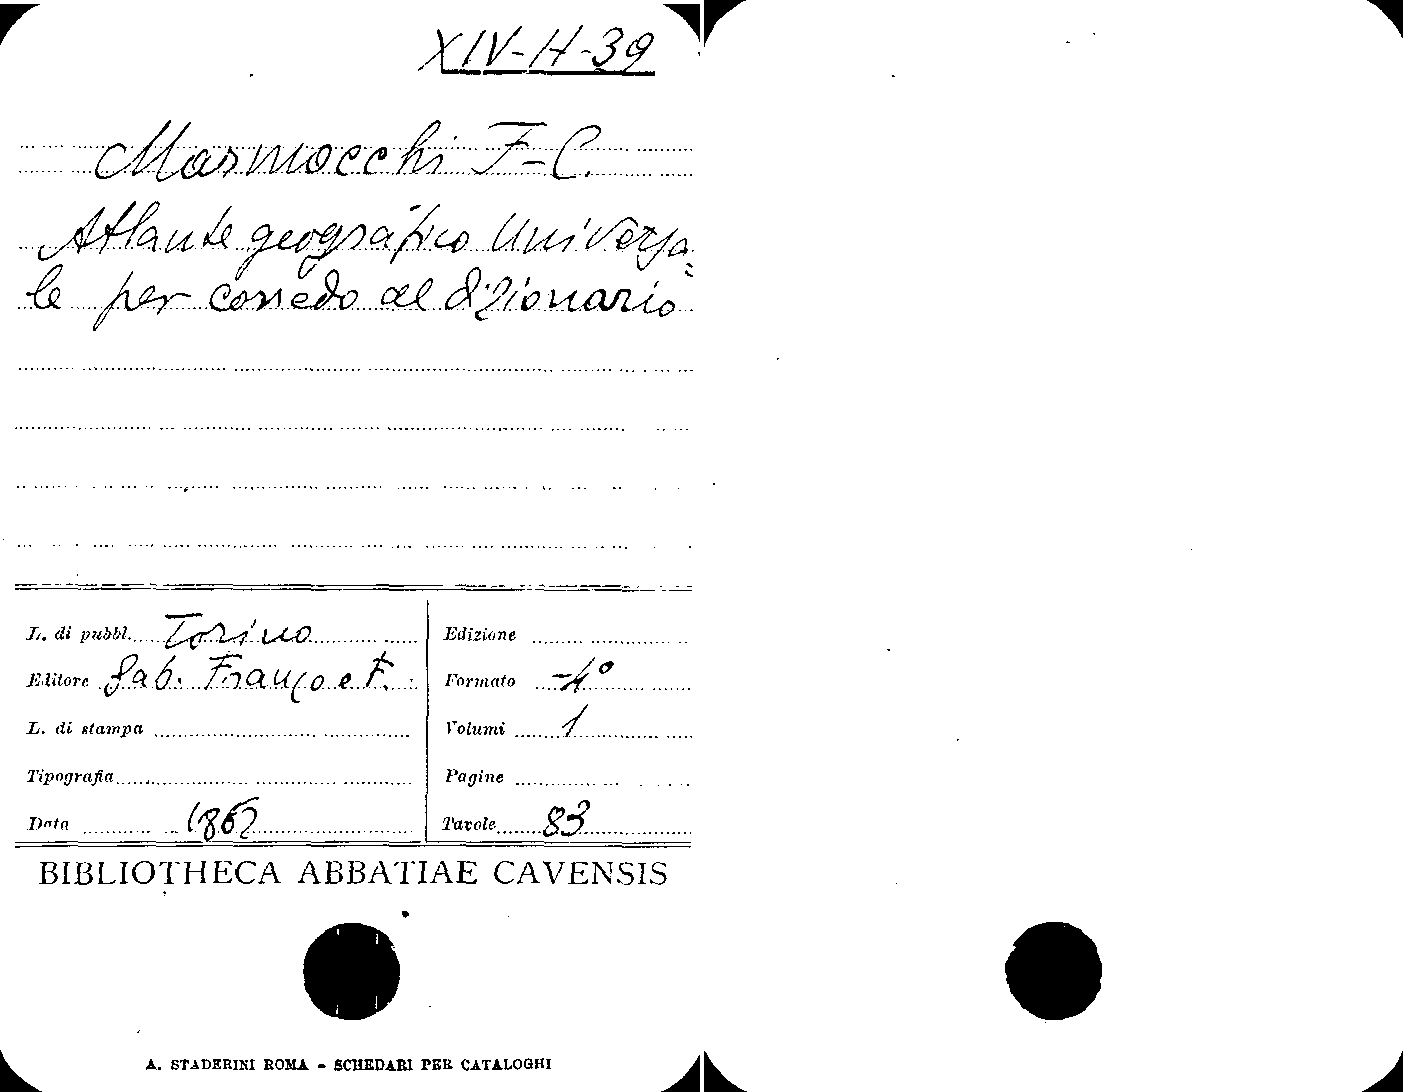 XIV-H-39
Marmocchi F-C.
Atlante geografico Universa=
le per corredo al dizionario
L. di pubbl. Torino
Editore Seb. Franco e F.
L. di stampa
Tipografia
Data 1862
Edizione
Formato -4°
Volumi 1
Pagine
Tavole 83
BIBLIOTHECA ABBATIAE CAVENSIS
A. STADERINI ROMA - SCHEDARI PER CATALOGHI